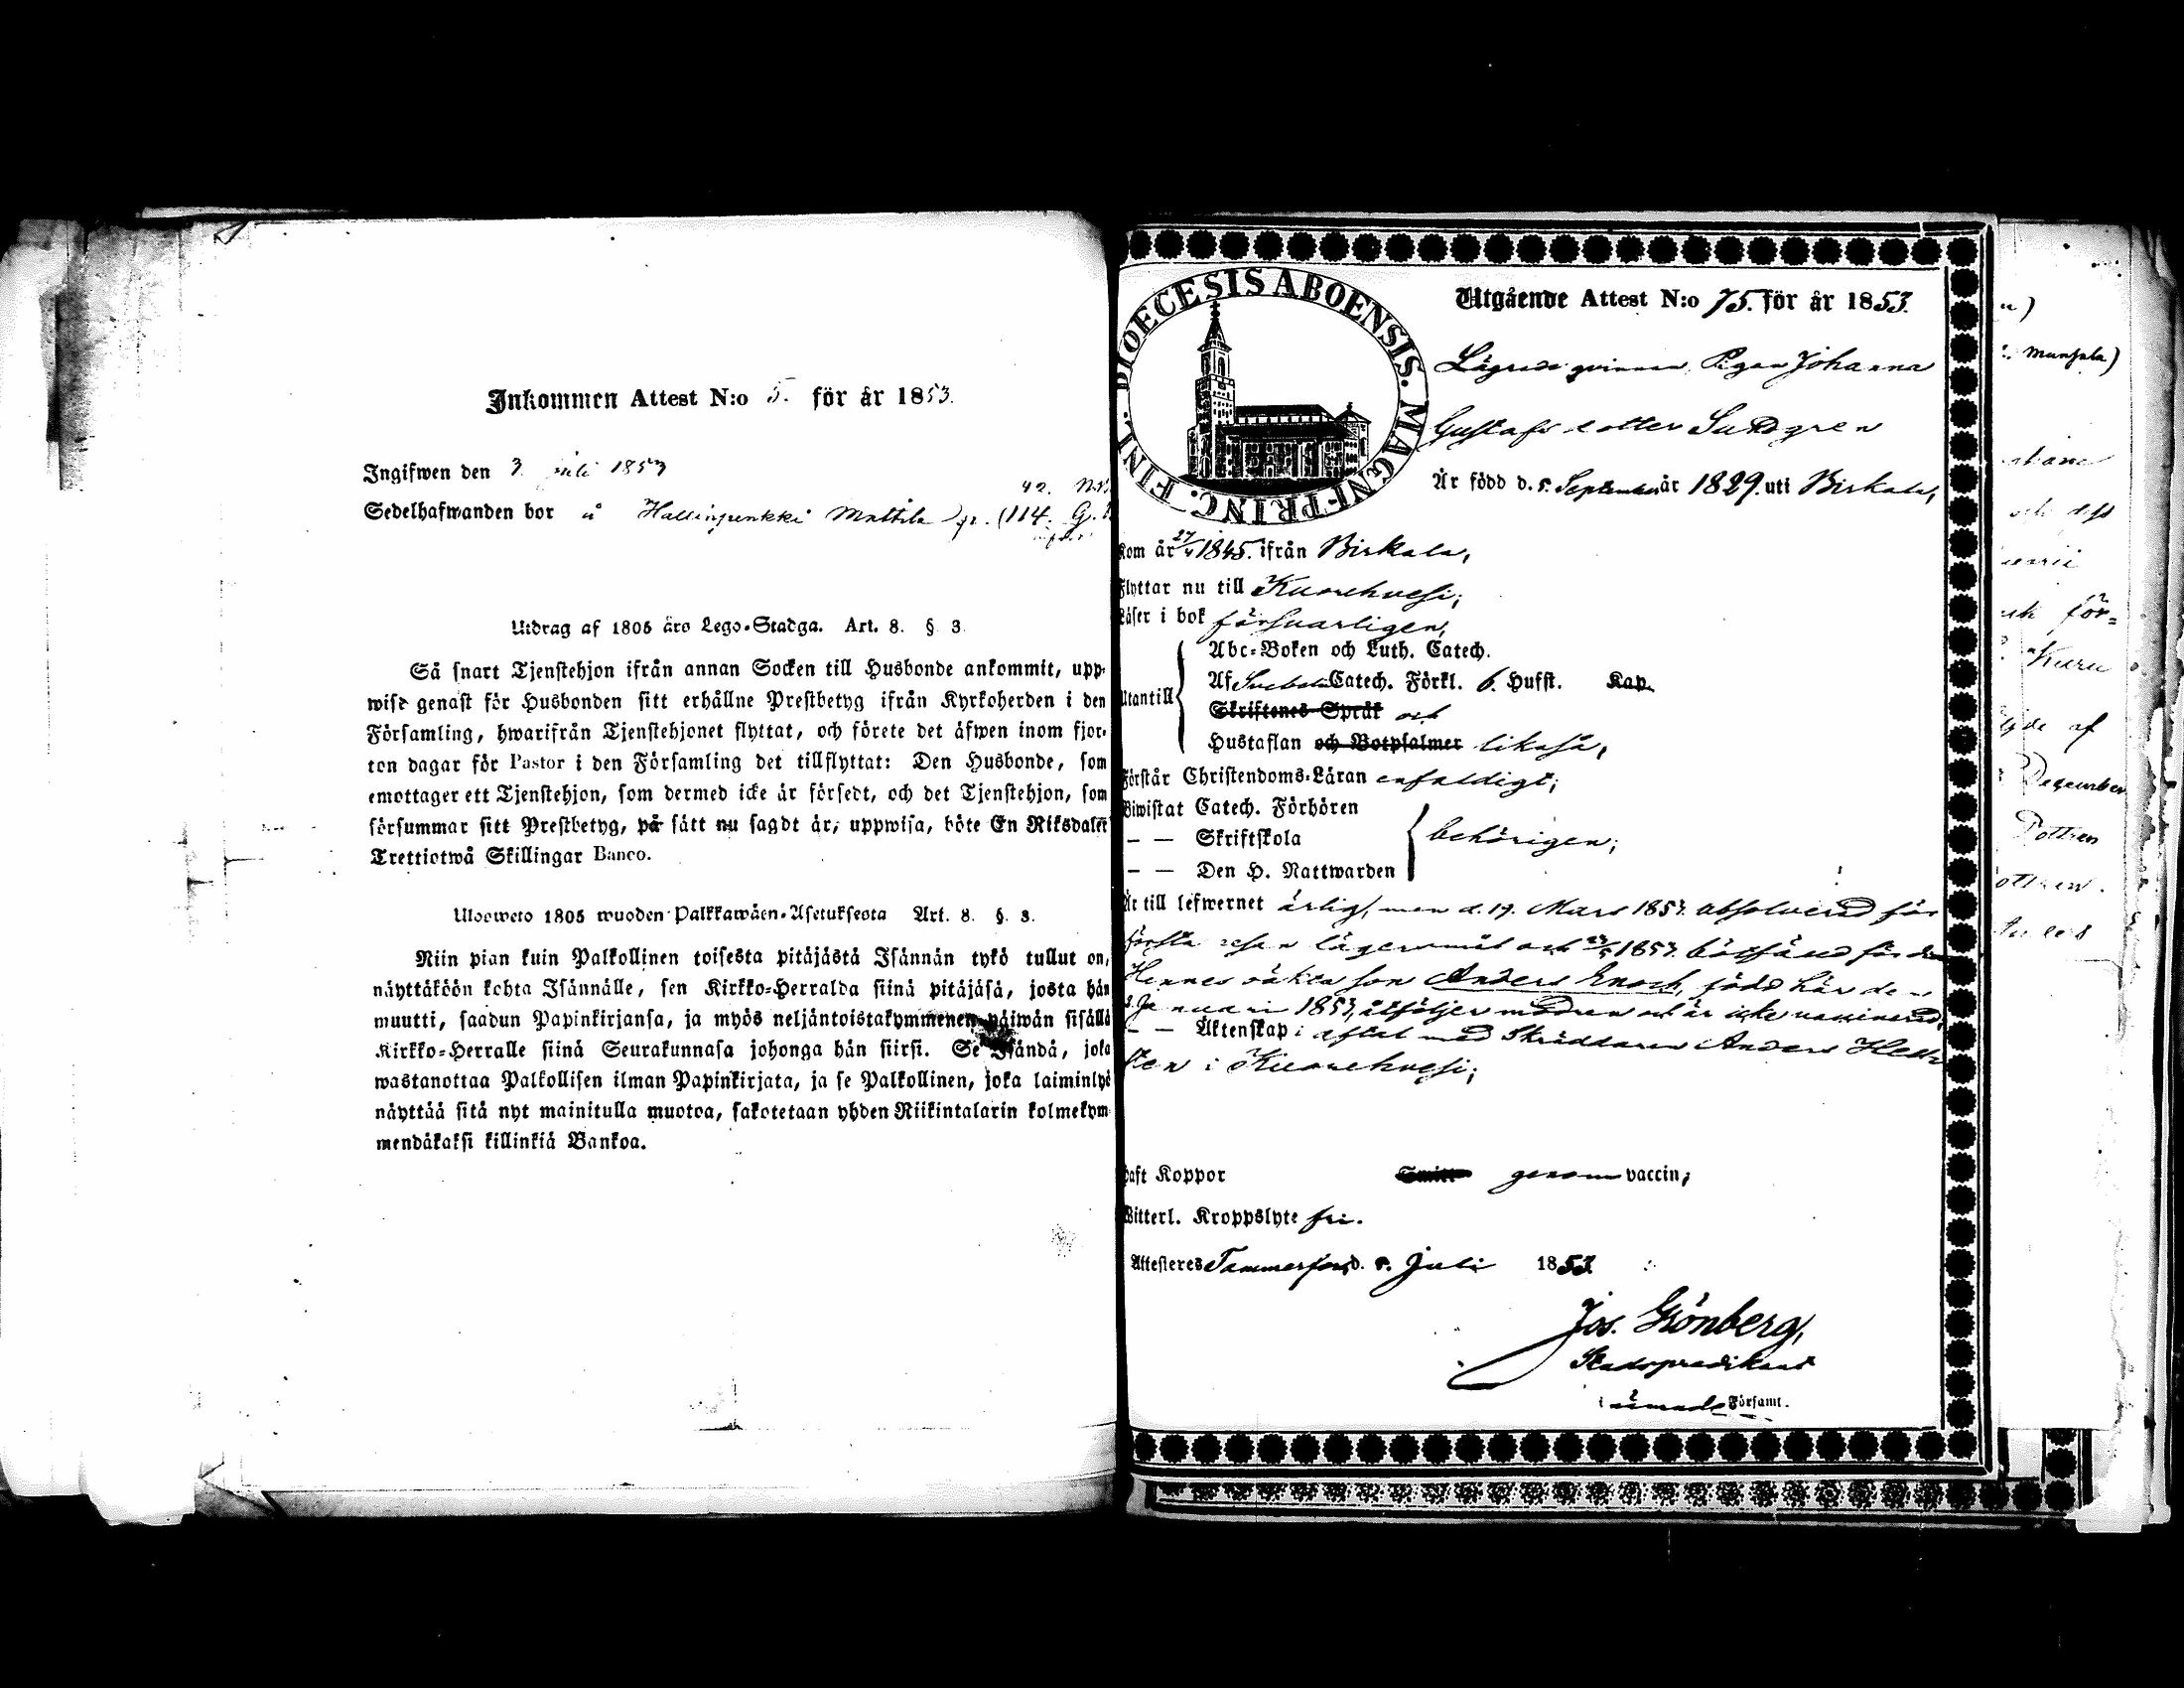 Inkommen Attest N:o 5. för år 1853.
Ingifwen den 3. juli 1853
Sedelhafwanden bor å Hallinpenkki Mattila
42.
(114. G.
Utdrag af 1805 års Lego-Stadga. Art. 8. § 3.
Så snart Tjenstehjon ifrån annan Socken till Husbonde ankommit, upp-
wise genast för Husbonden sitt erhållne Prestbetyg ifrån Kyrkoherden i den
Församling, hwarifrån Tjenstehjonet flyttat, och förete det äfwen inom fjor-
ton dagar för Pastor i den Församling det tillflyttat: Den Husbonde, som
emottager ett Tjenstehjon, som dermed icke är försedt, och det Tjenstehjon, som
försummar sitt Prestbetyg, på sätt nu sagdt är, uppwisa, böte En Riksdaler
Trettiotwå Skillingar Banco.
Ulosweto 1805 wuoden Palkkawäen-Asetuksesta Art. 8. §. 3.
Niin pian kuin Palkollinen toisesta pitäjästä Isännän tykö tullut on,
näyttäköön kohta Isännälle, sen Kirkko-Herralda siinä pitäjäsä, josta hän
muutti, saadun Papinkirjansa, ja myös neljäntoistakymmenen päiwän sisällä
Kirkko-Herralle siinä Seurakunnasa johonga hän siirsi. Se Isändä, joka
wastanottaa Palkollisen ilman Papinkirjata, ja se Palkollinen, joka laiminlyö
näyttää sitä nyt mainitulla muotoa, sakotetaan yhden Riikintalarin kolmekym-
mendäkaksi killinkiä Bankoa.
DIOECESIS ABOENSIS. MAGNI-PRINC. FINL.
Utgående Attest N:o 75. för år 1853.
Lägrade qvinnan, Pigan Johanna
Gustafsdotter Sundgren
Är född d. 5. September år 1829. uti Birkala,
Kom år 27/4 1845. ifrån Birkala,
Flyttar nu till Kuorehvesi;
Läser i bok försvarligen,
Utantill
Abc-Boken och Luth. Catech.
Af Svebelii Catech. Förkl. 6. Hufst. Kap.
Skriftenes Språk och
Hustaflan och Botpsalmer likaså,
Förstår Christendoms-Läran enfaldigt;
Biwistat Catech. Förhören
— — Skriftskola
behörigen;
— — Den H. Nattwarden
Är till lefwernet ärlig, men d. 19. Mars 1853. absolverad för
första resan lägersmål och 1853. bötfäld för den
Hennes oäkta son Anders Enoch, född här den
Januari 1853, åtföljer modren och är icke vaccinerad,
— — Äktenskap: aftal med Skräddaren Anders
i Kuorehvesi;
Haft Koppor genom vaccin;
Witterl. Kroppslyte fri.
Attesteres Tammerfors, d. 5. Juli 1853.
Jos. Grönberg,
Stadspredikant
i ännade Församl.
Munsala)
och dess
för-
Kuru
af
December